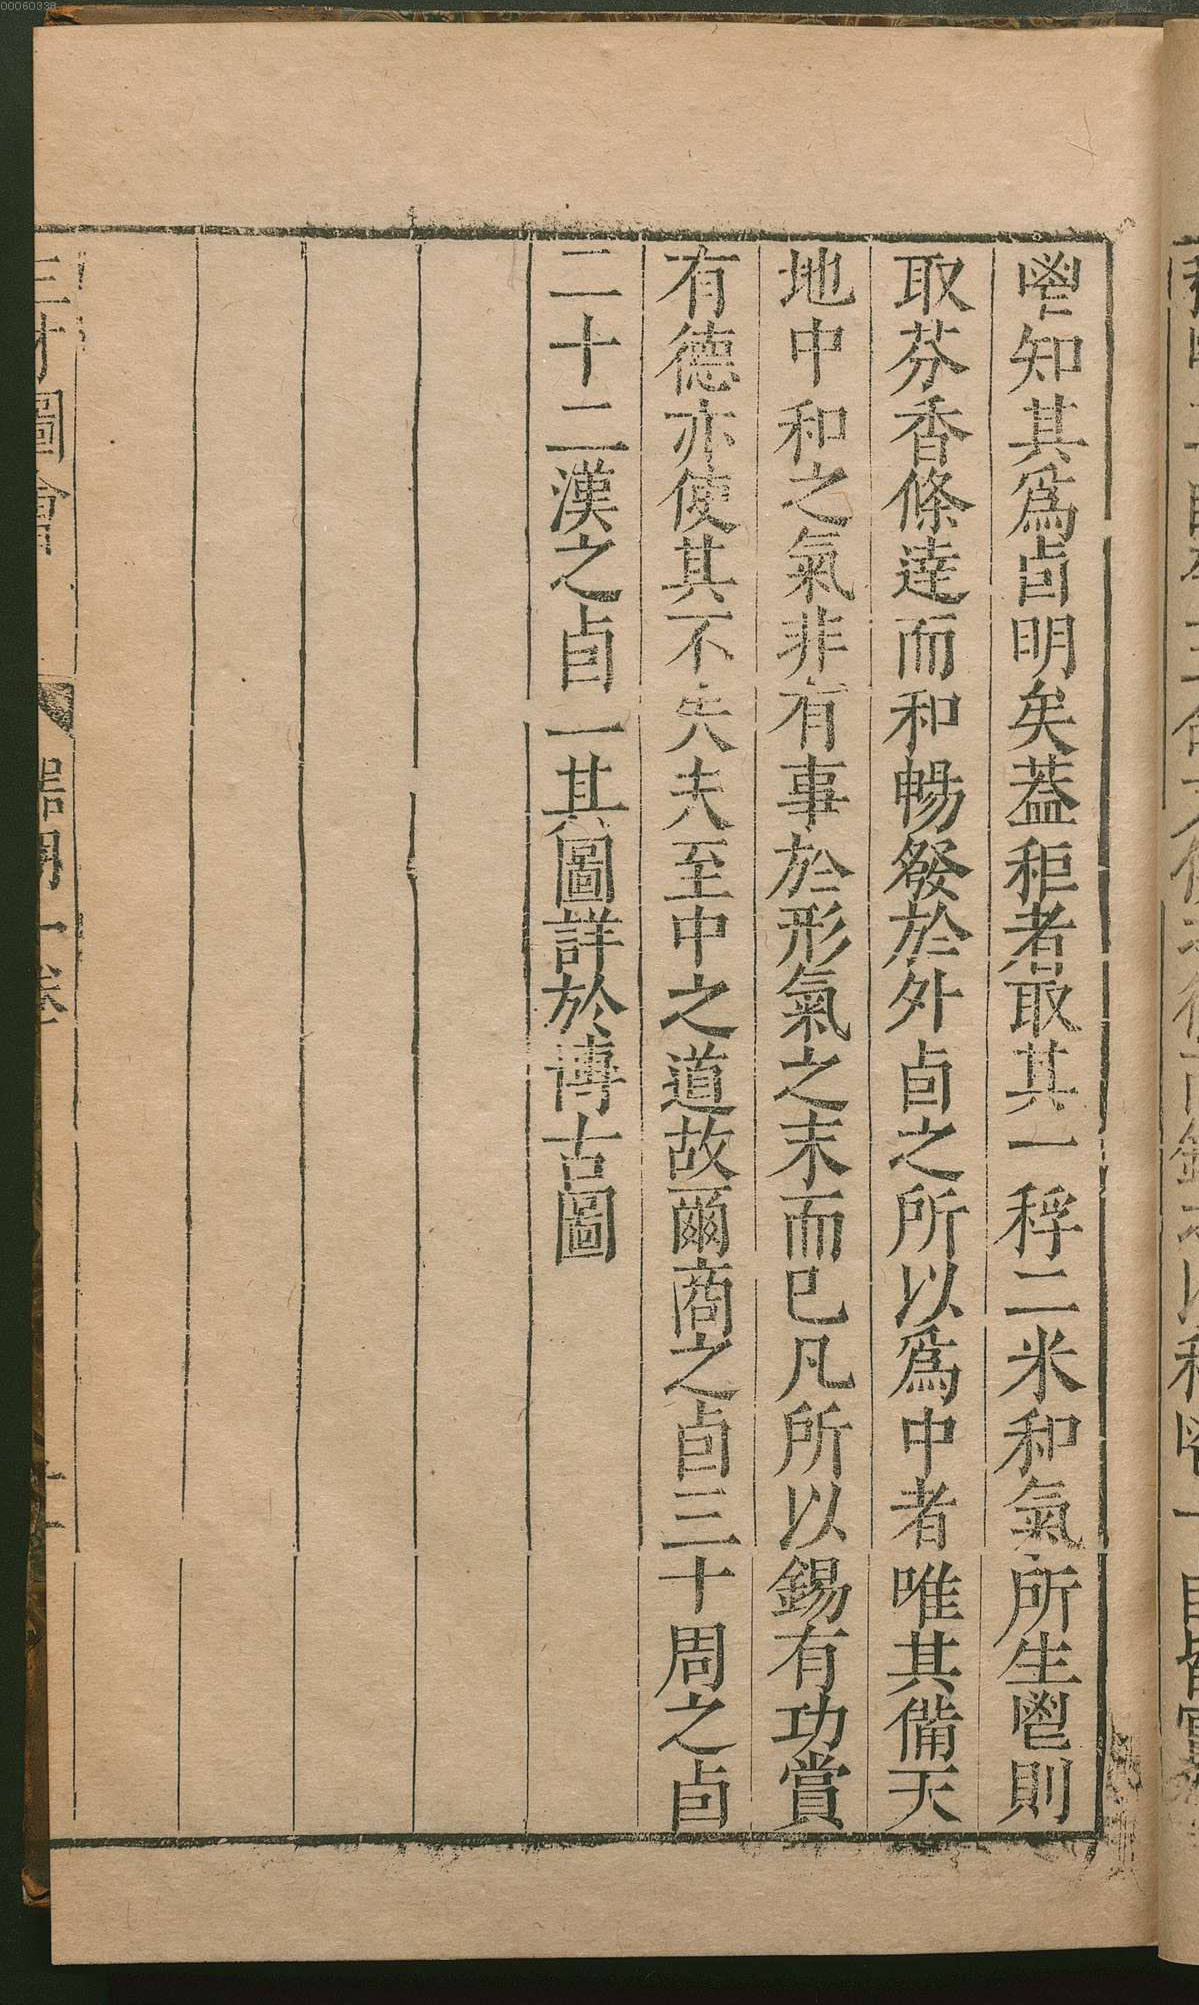 鬯知其爲卣明矣蓋秬者取其一稃二米和氣所生鬯則
取芬香條達而和暢發於外卣之所以爲中者唯其備天
地中和之氣非有事於形氣之末而已凡所以錫有功賞
有德亦使其不失夫至中之道故爾商之卣三十周之卣
二十二漢之卣一其圖詳於博古圖
三才圖會
器用一卷
00060338